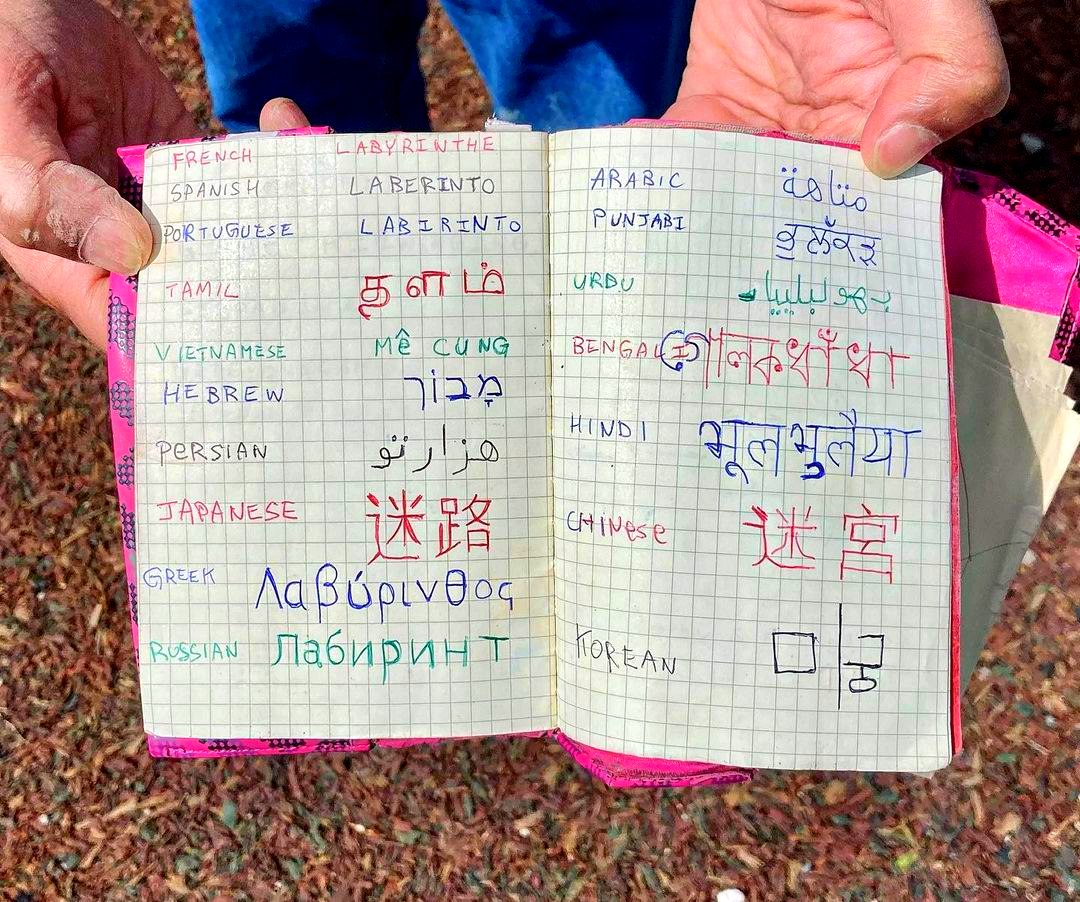 FRENCH LABYRINTHE
SPANISH LABERINTO
PORTUGUESE LABIRINTO
TAMIL தளம்
VIETNAMESE Mê CUNG
HEBREW מָבוֹך
PERSIAN هزارتو
JAPANESE 迷路
GREEK Λαβύρινθος
RUSSIAN Лабиринт
ARABIC متاهة
PUNJABI
URDU
BENGALI
HINDI भूलभुलैया
CHINESE 迷宮
KOREAN 미궁